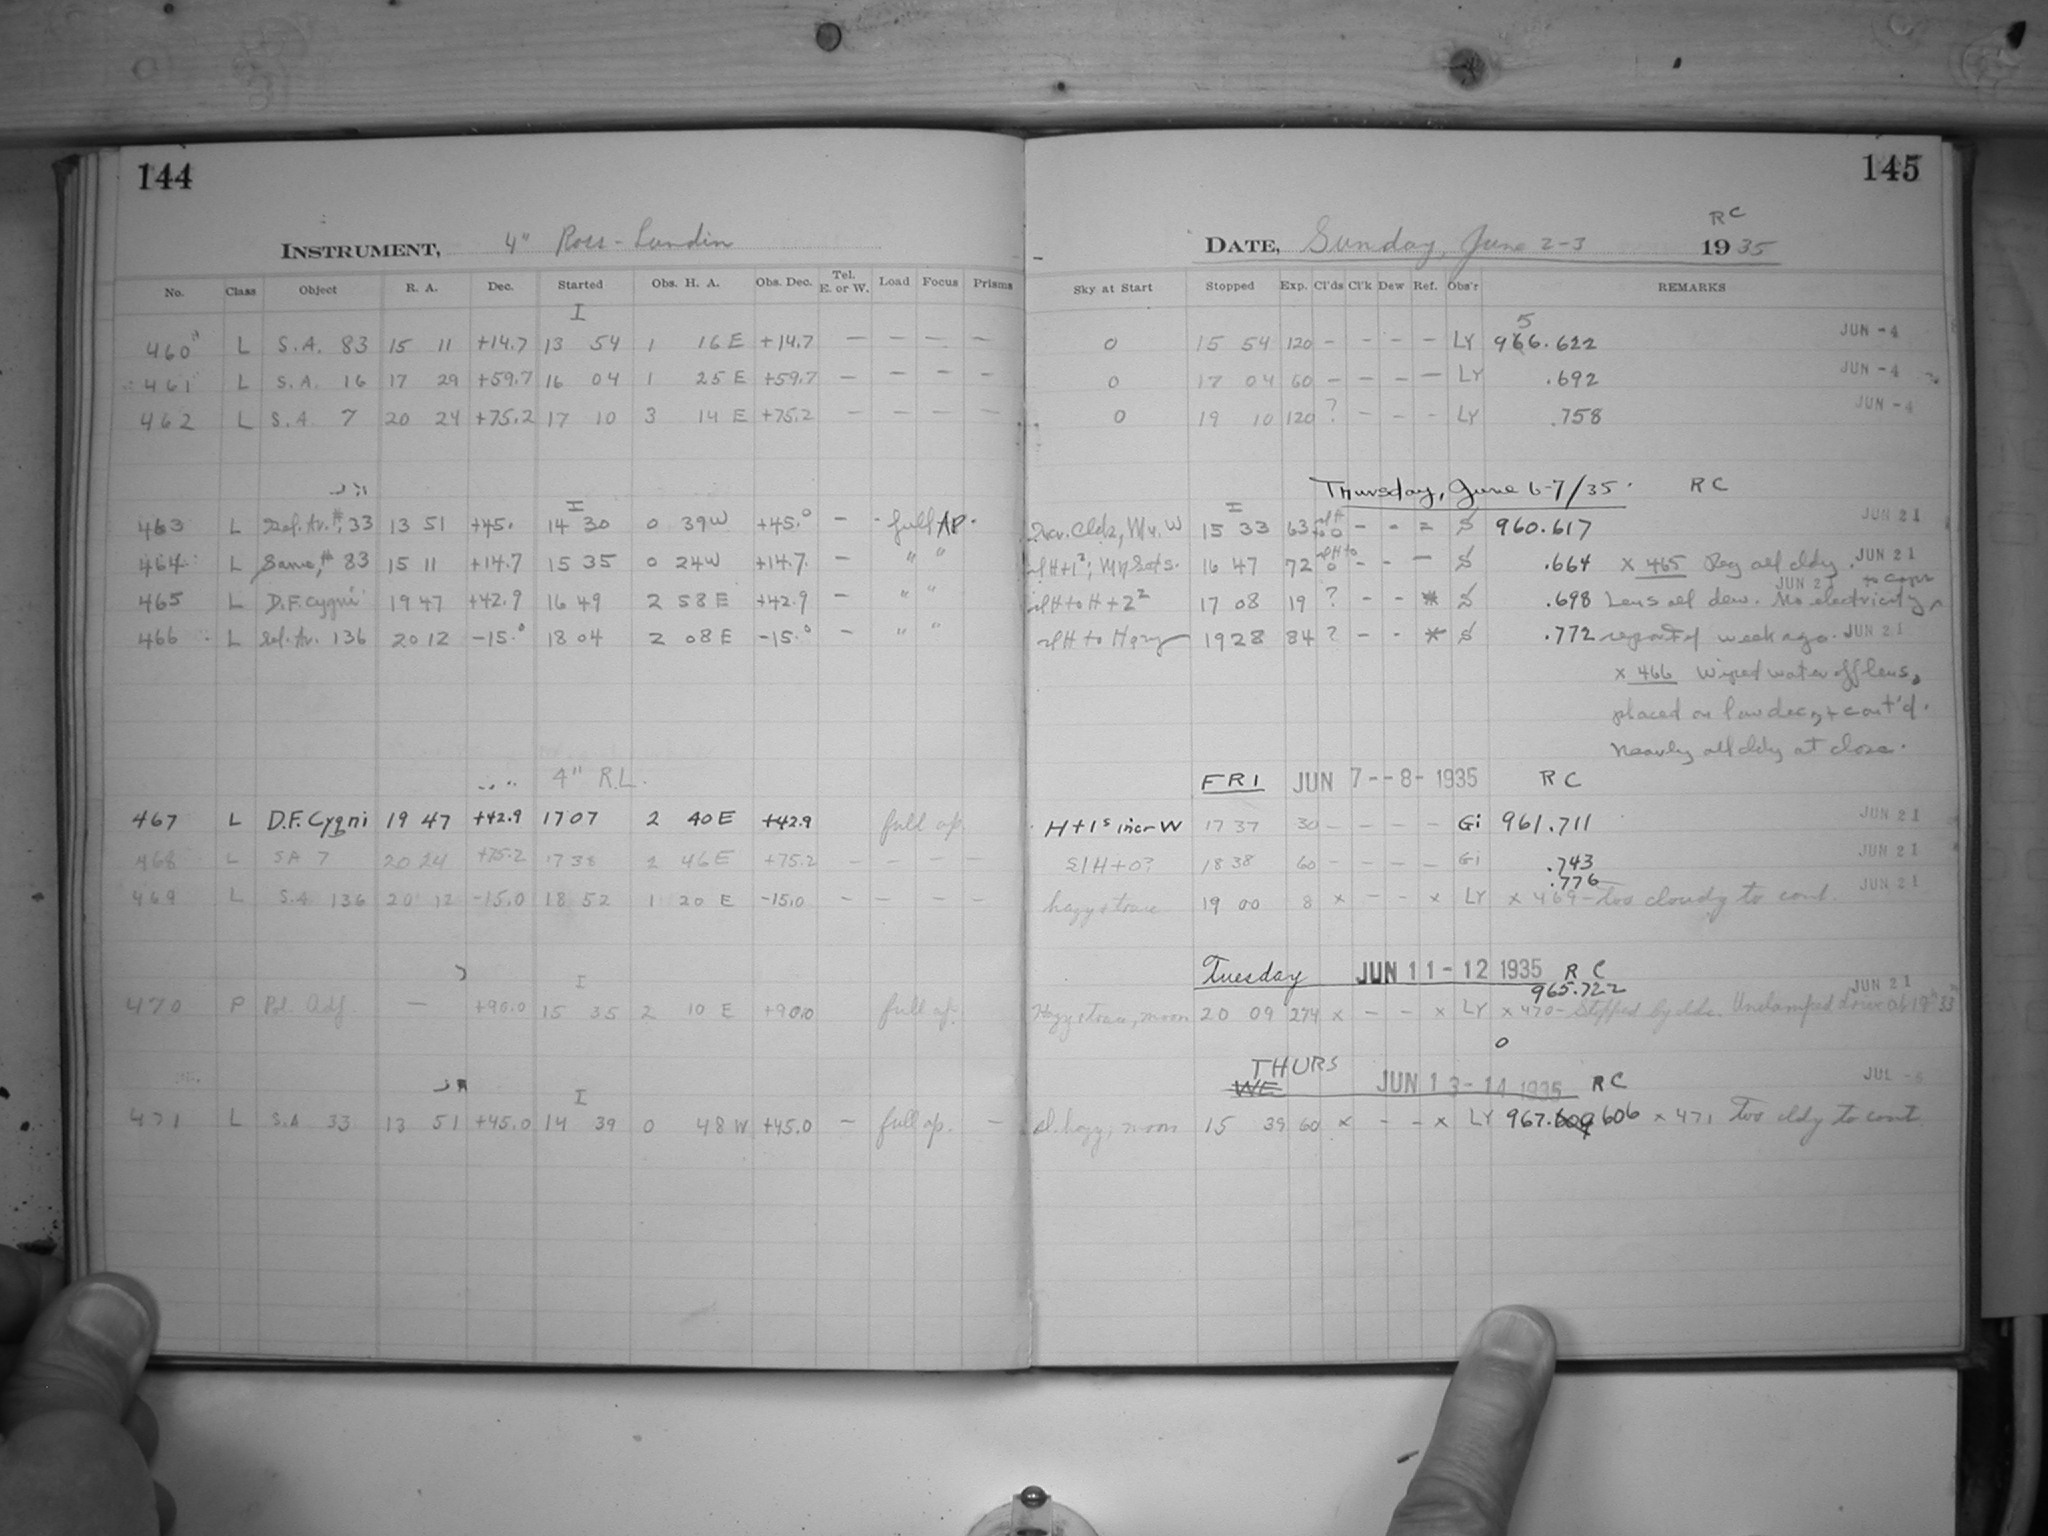 144
INSTRUMENT, 4" Ross-Lundin
No. Class Object R. A. Dec. Started Obs. H. A. Obs. Dec. Tel. E. or W. Load Focus Prisms
I
460 L S.A. 83 15 11 +14.7 13 54 1 16 E +14.7 — — — —
461 L S.A. 16 17 29 +59.7 16 04 1 25 E +59.7 — — — —
462 L S.A. 7 20 24 +75.2 17 10 3 14 E +75.2 — — — —
I
463 L Sel. Ar. # 33 13 51 +45. 14 30 0 39 W +45.° — full AP.
464 L Same, # 83 15 11 +14.7 15 35 0 24 W +14.7. — " "
465 L D.F. Cygni 19 47 +42.9 16 49 2 58 E +42.9 — " "
466 L Sel. Ar. 136 20 12 -15.° 18 04 2 08 E -15.° — " "
4" R.L.
467 L D.F. Cygni 19 47 +42.9 17 07 2 40 E +42.9 full ap.
468 L SA 7 20 24 +75.2 17 38 2 46 E +75.2 — — — —
469 L S.A. 136 20 12 -15.0 18 52 1 20 E -15.0 — — — —
I
470 P Pol. Adj. — +90.0 15 35 2 10 E +90.0 full ap.
I
471 L S.A 33 13 51 +45.0 14 39 0 48 W +45.0 — full ap. —
145
RC
DATE, Sunday, June 2-3 1935
Sky at Start Stopped Exp. Cl'ds Cl'k Dew Ref. Obs'r REMARKS
5
0 15 54 120 - - - - LY 966.622 JUN -4
0 17 04 60 - - - - LY .692 JUN -4
0 19 10 120 ? - - - LY .758 JUN -4
Thursday, June 6-7/35. RC
I
W 15 33 63 - - = S 960.617 JUN 21
16 47 72 - - - S .664 x 465 all cldy. JUN 21
JUN 21
slH to H+2² 17 08 19 ? - - * S .698 Lens all dew. No electricity
slH to 19 28 84 ? - - * S .772 week ago. JUN 21
x 466 Wiped water off lens,
placed on low dec, + cont'd.
Nearly all cldy at close.
FRI JUN 7--8-1935 RC
H+1ˢ incr W 17 37 30 - - - - Gi 961.711 JUN 21
SlH+0? 18 38 60 - - - - Gi .743 JUN 21
.776
hazy + trace 19 00 8 x - - x LY x 469 - too cloudy to cont. JUN 21
Tuesday JUN 11-12 1935 RC
965.722 JUN 21
Hazy + trace, moon 20 09 274 x - - x LY x 470 - Stopped by clds. Unclamped
0
THURS
WE JUN 13-14 1935 RC JUL
sl. hazy, moon 15 39 60 x - - x LY 967.609 606 x 471 Too cldy to cont